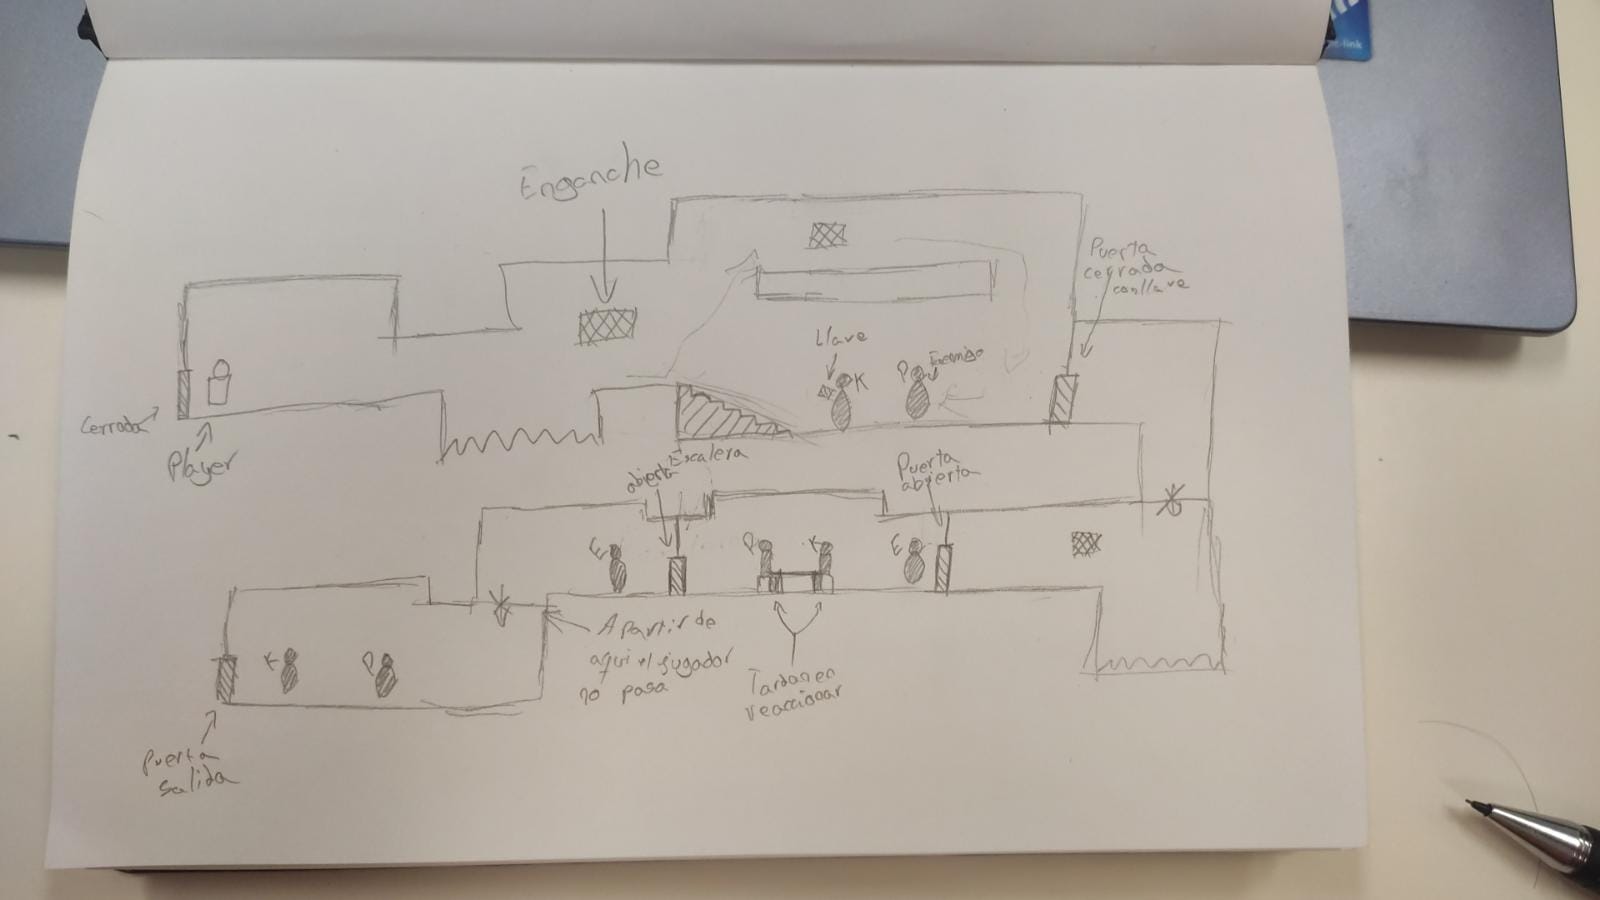 Enganche
Puerta
cerrada
con llave
Llave
K
P
Enemigo
Cerrada
Player
Escalera
abierta
Puerta
abierta
E
P
K
E
A partir de
aqui el jugador
no pasa
Tardan en
reaccionar
K
P
Puerta
Salida
link